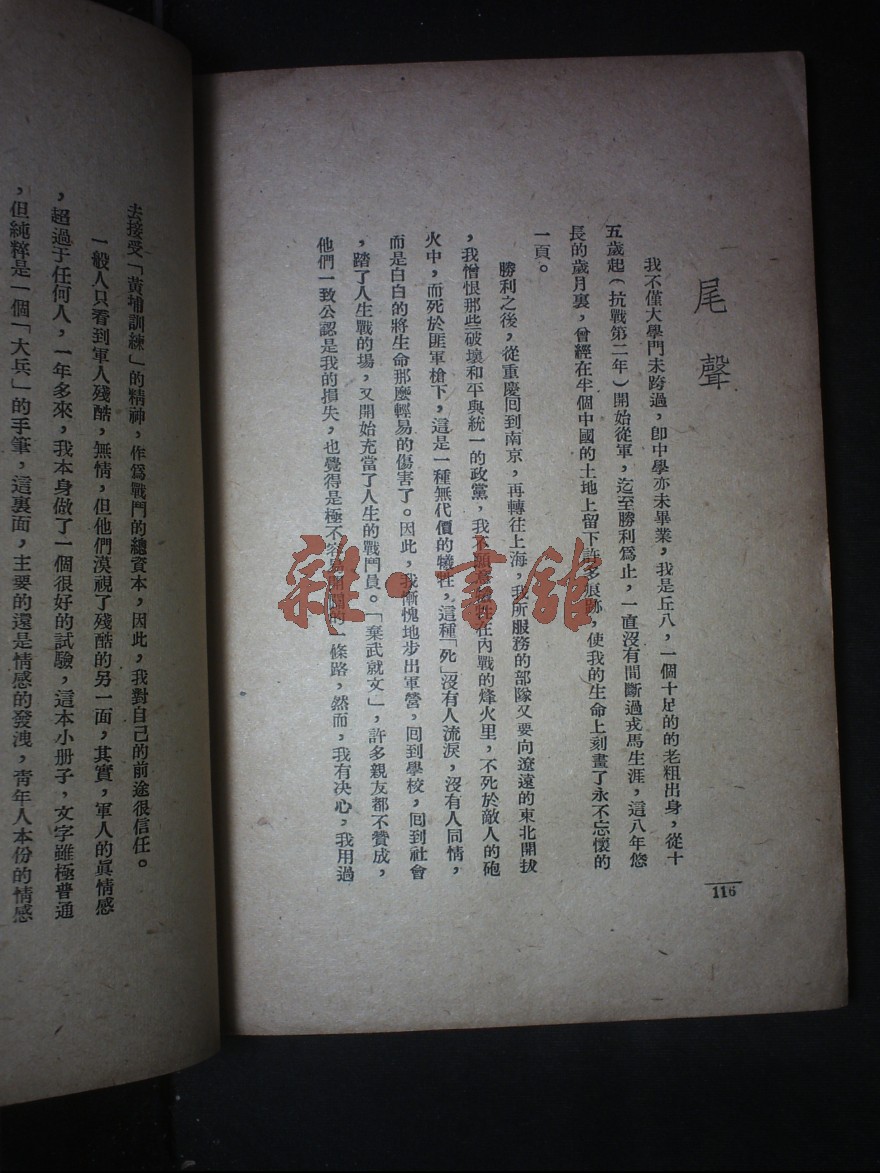 尾聲
我不僅大學門未跨過，卽中學亦未畢業，我是丘八，一個十足的的老粗出身，從十
五歲起（抗戰第二年）開始從軍，迄至勝利爲止，一直沒有間斷過戎馬生涯，這八年悠
長的歲月裏，曾經在半個中國的土地上留下許多痕跡，使我的生命上刻畫了永不忘懷的
一頁。
勝利之後，從重慶囘到南京，再轉往上海，我所服務的部隊又要向遼遠的東北開拔
，我憎恨那些破壞和平與統一的政黨，我不願意犧牲在內戰的烽火里，不死於敵人的砲
火中，而死於匪軍槍下，這是一種無代價的犧牲，這種「死」沒有人流淚，沒有人同情，
而是白白的將生命那麼輕易的傷害了。因此，我漸愧地步出軍營，囘到學校，囘到社會
，踏了人生戰的場，又開始充當了人生的戰鬥員。「棄武就文」，許多親友都不贊成，
他們一致公認是我的損失，也覺得是極不容的一條路，然而，我有決心，我用過
116
去接受「黃埔訓練」的精神，作爲戰鬥的總資本，因此，我對自己的前途很信任。
一般人只看到軍人殘酷，無情，但他們漠視了殘酷的另一面，其實，軍人的眞情感
，超過于任何人，一年多來，我本身做了一個很好的試驗，這本小册子，文字雖極普通
，但純粹是一個「大兵」的手筆，這裏面，主要的還是情感的發洩，靑年人本份的情感
雜·書館